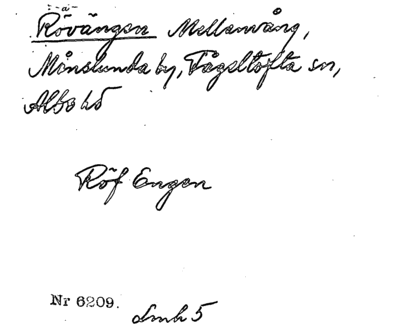 -a-
Rövängen Mellanvång,
Månslunda by, Fågeltofta sn,
Albo hd
Röf Engen
Nr 6209.
Lmh 5